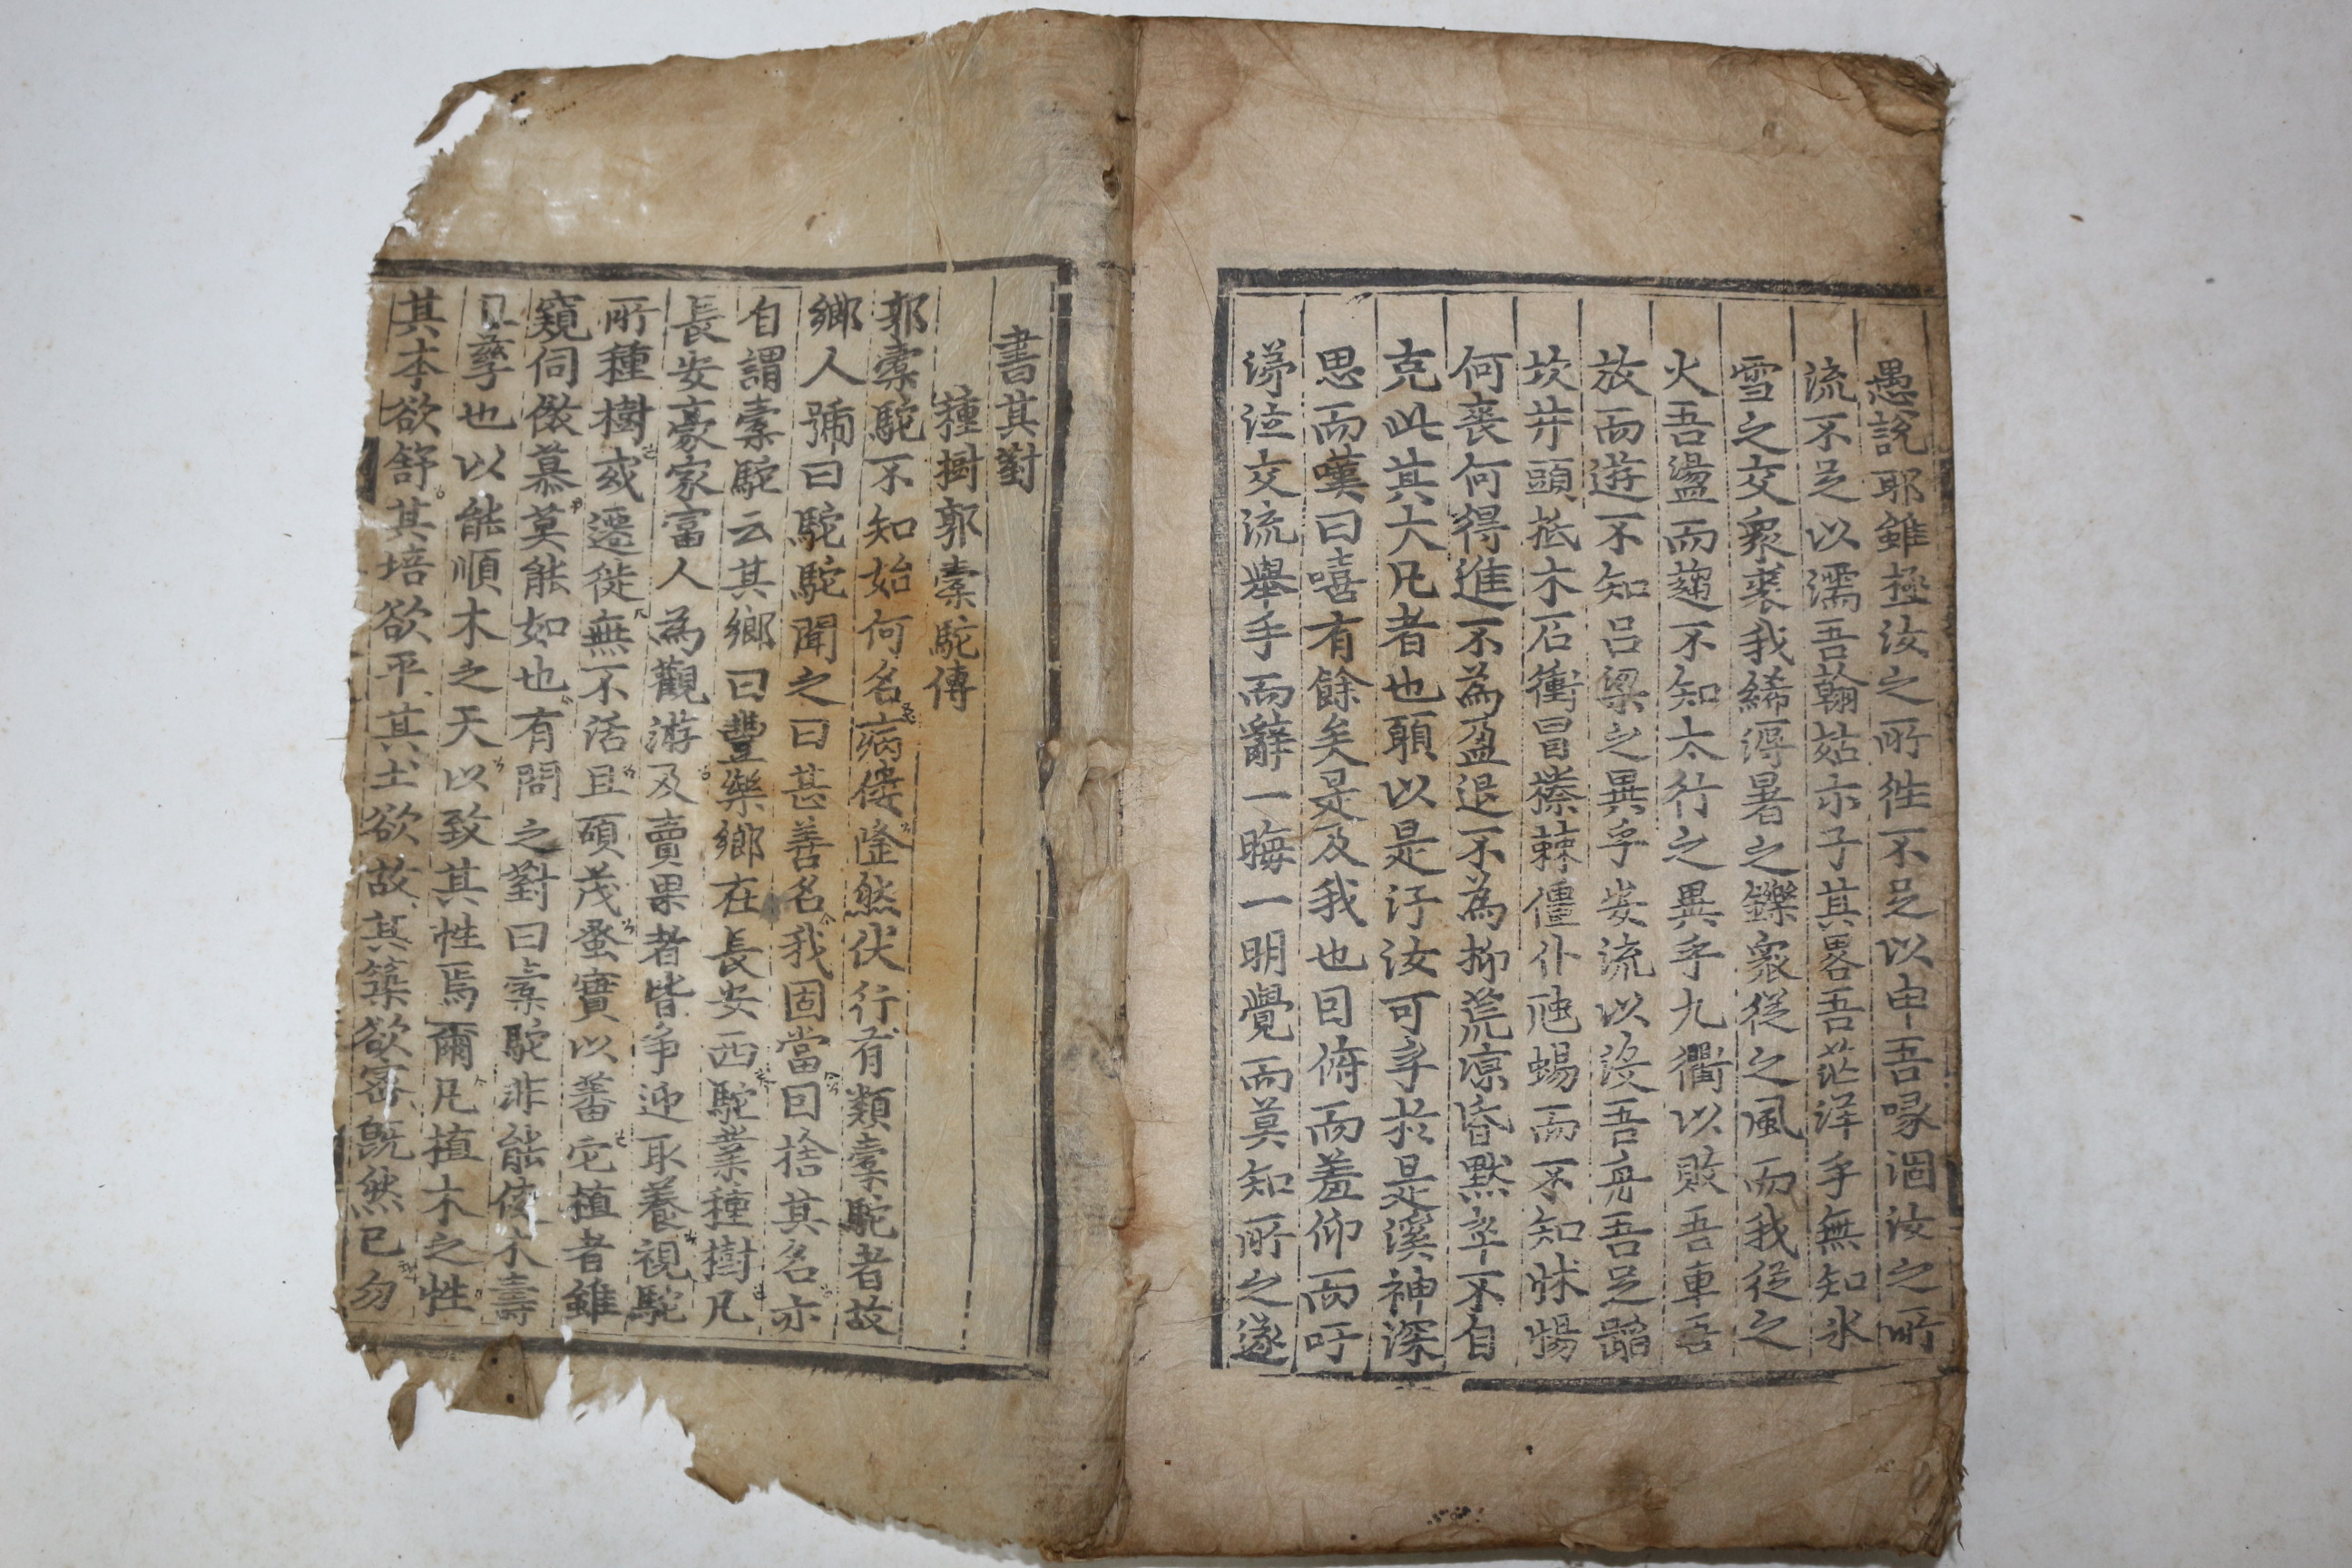 愚説耶雖極汝之所往不足以申吾喙涸汝之所
流不足以濡吾翰姑示子其畧吾茫洋乎無知氷
雪之交衆裘我絺溽暑之鑠衆從之風而我從之
火吾盪而趨不知太行之異乎九衢以敗吾車吾
放而遊不知呂梁之異乎安流以沒吾舟吾足蹈
坎井頭抵木石衝冒榛棘僵仆虺蜴而不知怵惕
何喪何得進不為盈退不為抑荒凉昏默卒不自
克此其大凡者也願以是汙汝可乎於是溪神深
思而嘆曰嘻有餘矣是及我也因俯而羞仰而吁
涕泣交流舉手而辭一晦一明覺而莫知所之遂
書其對
種樹郭橐駝傳
郭橐駝不知始何名病僂隆然伏行有類橐駝者故
鄉人號曰駝駝聞之曰甚善名我固當因捨其名亦
自謂橐駝云其鄉曰豐樂鄉在長安西駝業種樹凡
長安豪家富人為觀游及賣果者皆争迎取養視駝
所種樹或遷徙無不活且碩茂蚤實以蕃它植者雖
窺伺傚慕莫能如也有問之對曰橐駝非能使木壽
且孳也以能順木之天以致其性焉爾凡植木之性
其本欲舒其培欲平其土欲故其築欲密旣然已勿